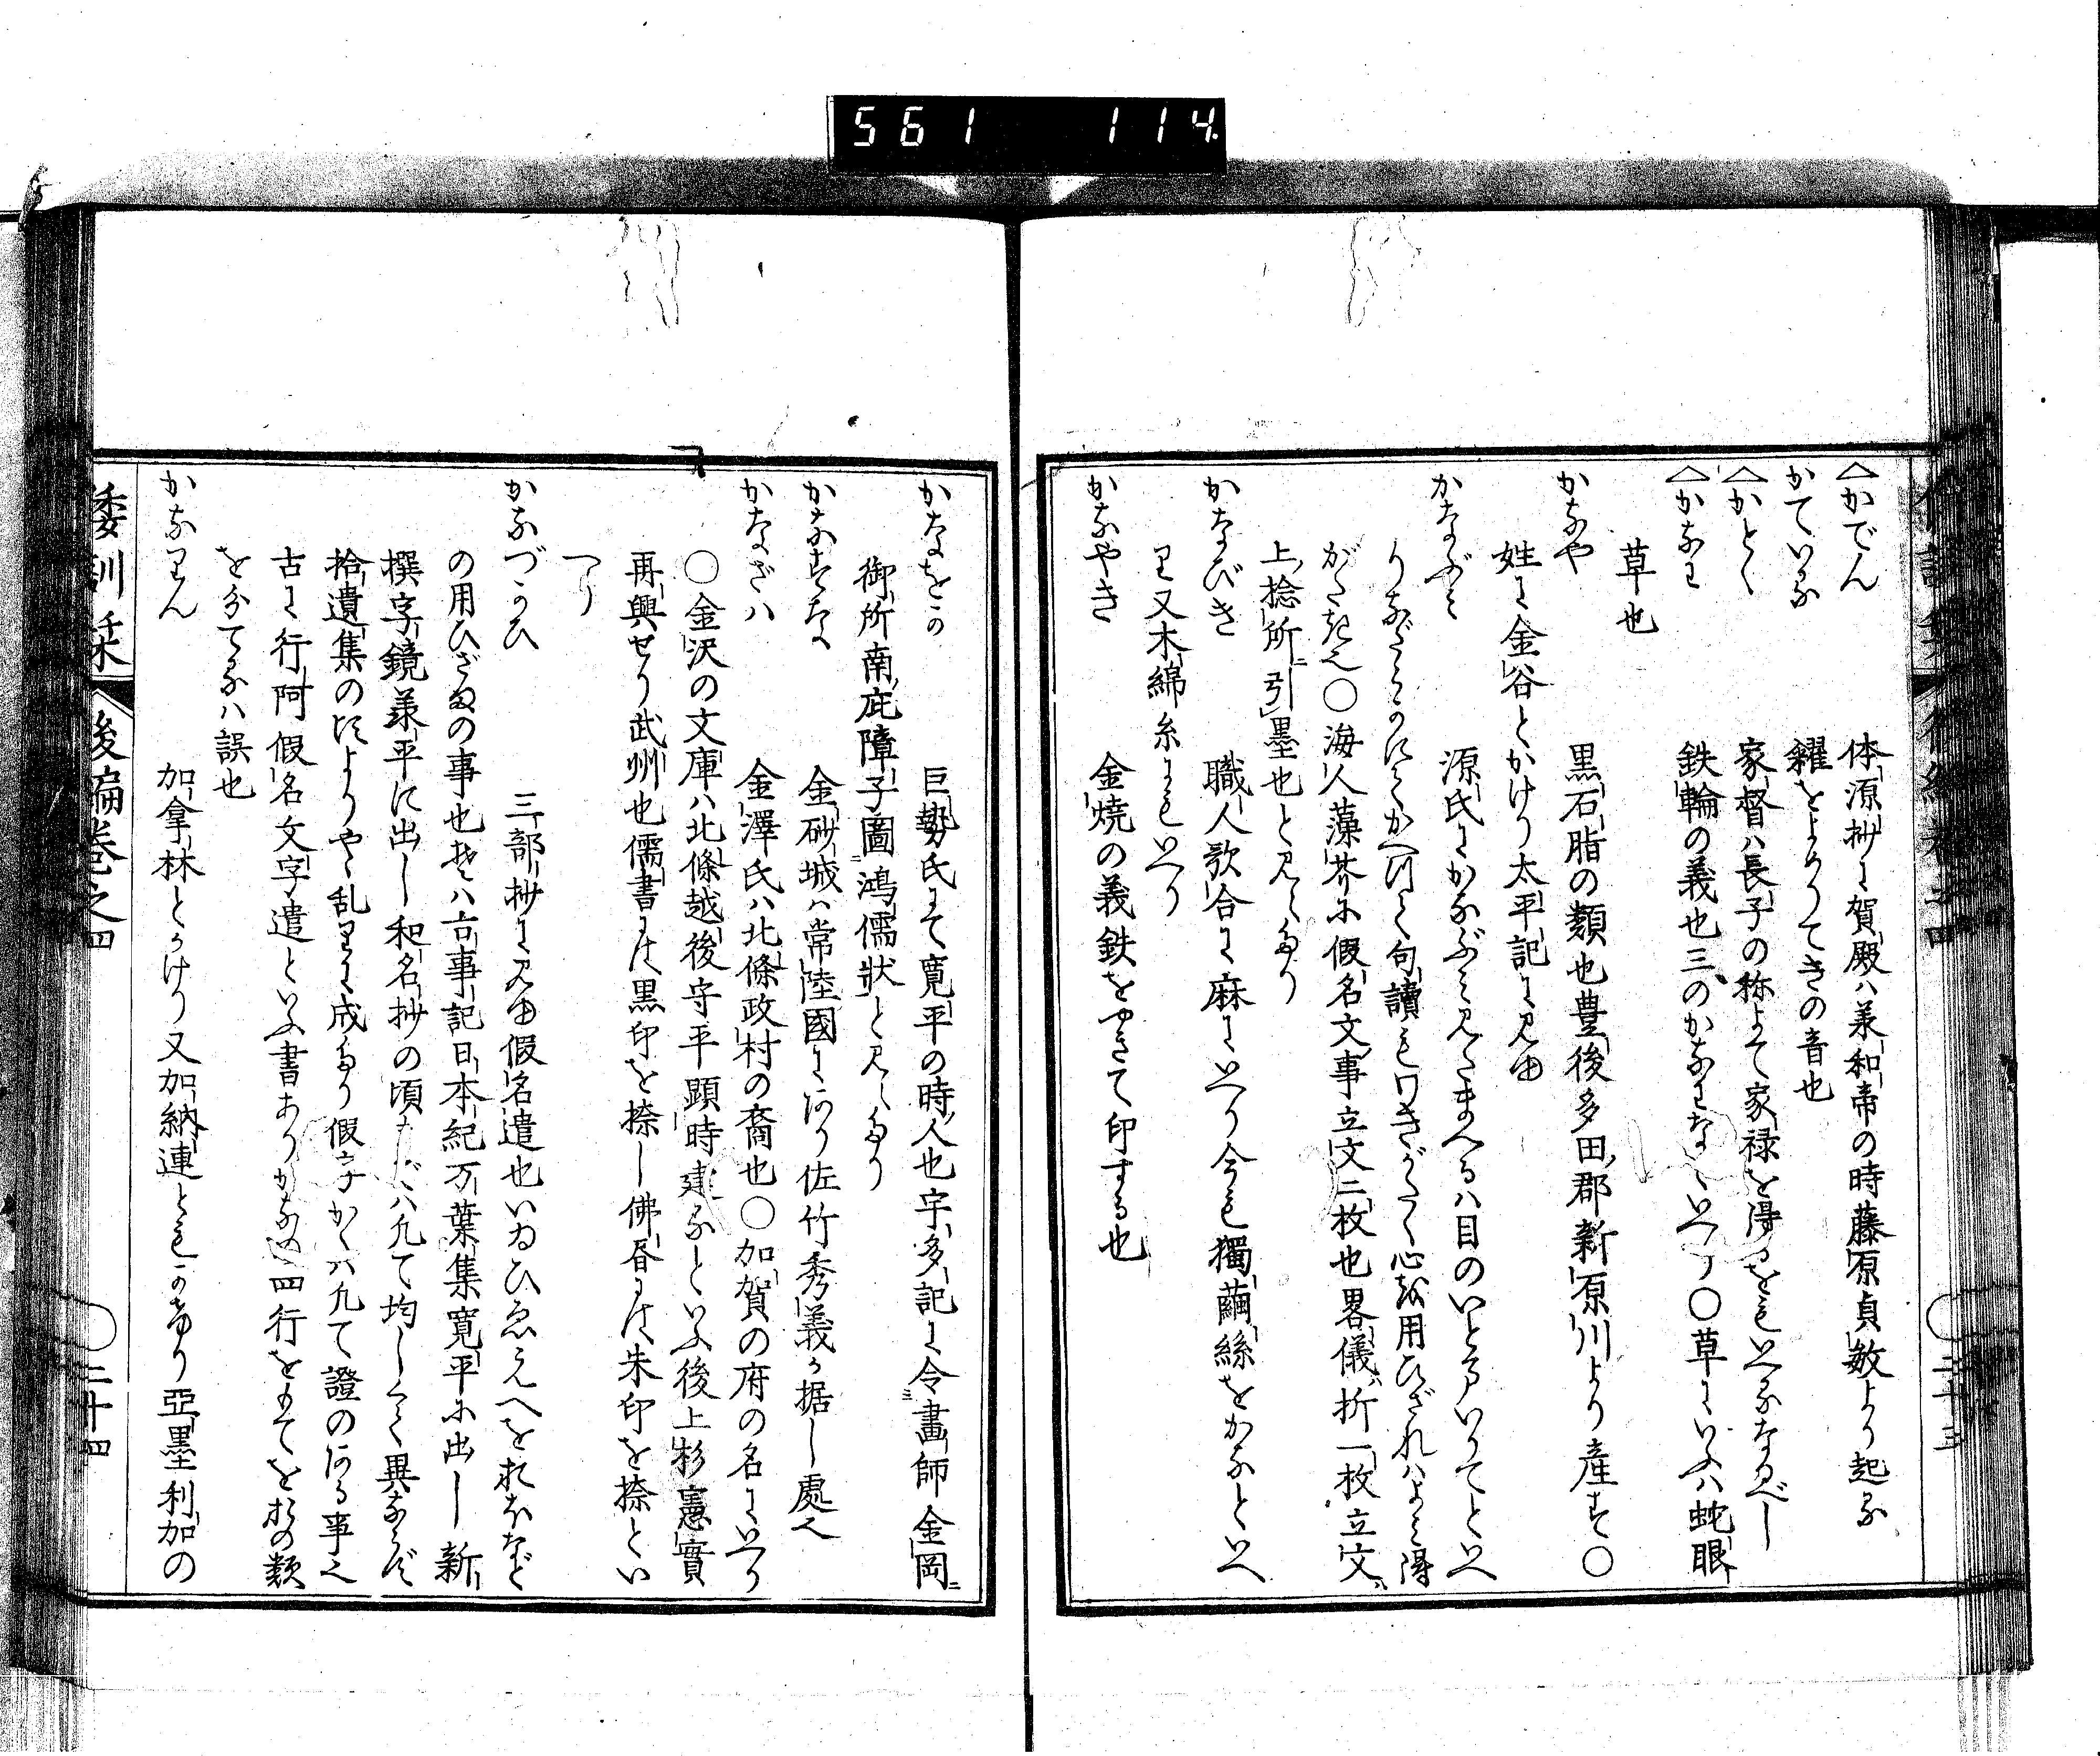 561 114
△かでん 体源抄に賀殿ハ承和帝の時藤原貞敏より起る
かている 糴をよめりてきの音也
△かとく 家督ハ長子の称にて家禄を得るをもいへるなるべし
△かなわ 鉄輪の義也三のかなわなといへり〇草にいふハ蛇眼
草也
かなや 黒石脂の類也豊後多田郡新原川より産す〇
姓に金谷とかけり太平記に見ゆ
かなぶみ 源氏にかなぶミ見たまへるハ目のいとまいりてといへ
りながらかにかへりて句讀もわきがたく心を用ひざれハよミ得
がたき也〇海人藻芥に假名文事立文二枚也畧儀ハ折一枚立文ハ
上捻所ニ引墨也と見えたり
かなびき 職人歌合に麻にいへり今も獨繭絲をかなといへ
り又木綿糸にもいへり
かなやき 金焼の義鉄をやきて印する也
かなをか 巨勢氏にて寛平の時人也宇多記に令画師金岡
御所南庇障子圖鴻儒状と見えたり
かなすな 金砂城ハ常陸國にあり佐竹秀義か据し處也
かなざハ 金澤氏ハ北條政村の裔也〇加賀の府の名にいへり
〇金沢の文庫ハ北條越後守平顕時建るといふ後上杉憲實
再興せり武州也儒書にハ黒印を捺し佛書にハ朱印を捺とい
へり
かなづかひ 三部抄に見ゆ假名遣也いゐひゑえへをおほなど
の用ひざまの事也其ハ古事記日本紀万葉集寛平に出し新
撰字鏡承平に出し和名抄の頃まではハ凡て均しくて異ならず
拾遺集のほどよりやゝ乱りに成たり假字かくハ凡て證のある事也
古に行阿假名文字遣といふ書あり四行をもてをおの類
を分てるハ誤也
かなりん 加拿林とかけり又加納連ともかけり亞墨利加の
倭訓栞 後編巻之四 〇二十四